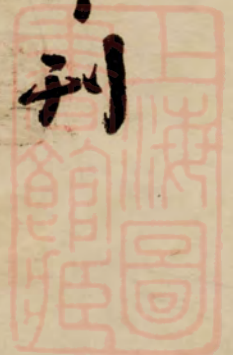 刊
上海圖
書館藏